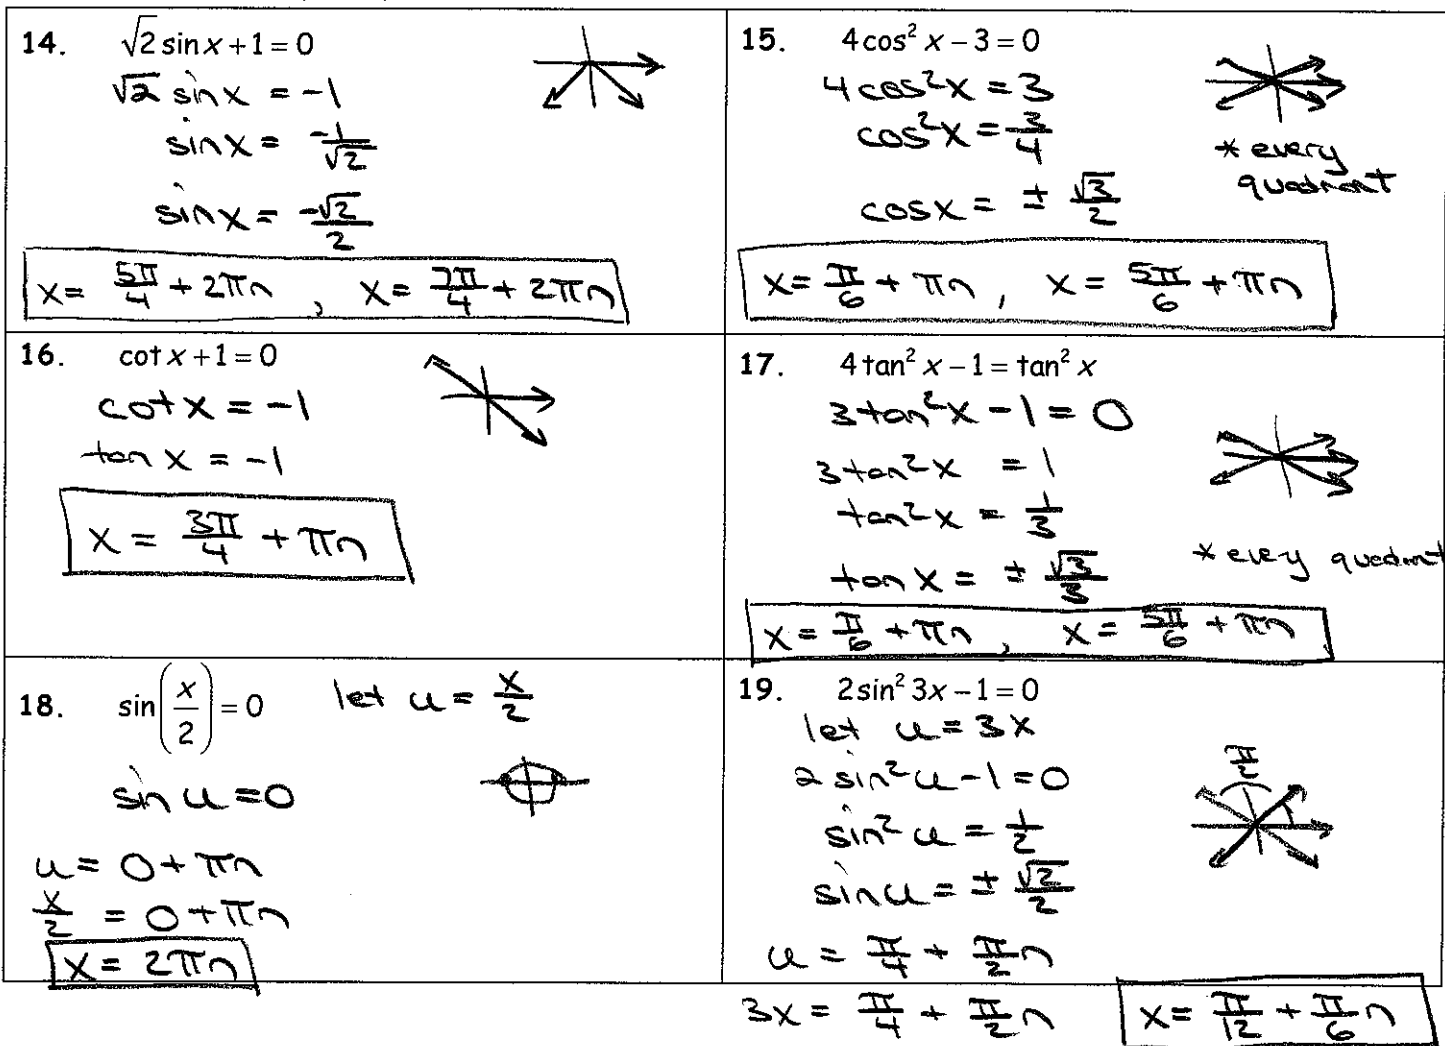 14. √2 sin x + 1 = 0
√2 sin x = -1
sin x = -1/√2
sin x = -√2/2
x = 5π/4 + 2πn , x = 7π/4 + 2πn
15. 4cos² x - 3 = 0
4cos²x = 3
cos²x = 3/4
cosx = ± √3/2
* every
quadrant
x = π/6 + πn , x = 5π/6 + πn
16. cot x + 1 = 0
cot x = -1
tan x = -1
x = 3π/4 + πn
17. 4tan² x - 1 = tan² x
3tan²x - 1 = 0
3tan²x = 1
tan²x = 1/3
tan x = ± √3/3
* every quadrant
x = π/6 + πn , x = 5π/6 + πn
18. sin(x/2) = 0 let u = x/2
sin u = 0
u = 0 + πn
x/2 = 0 + πn
x = 2πn
19. 2sin² 3x - 1 = 0
let u = 3x
2 sin²u - 1 = 0
π/2
sin²u = 1/2
sinu = ± √2/2
u = π/4 + π/2 n
3x = π/4 + π/2 n x = π/12 + π/6 n